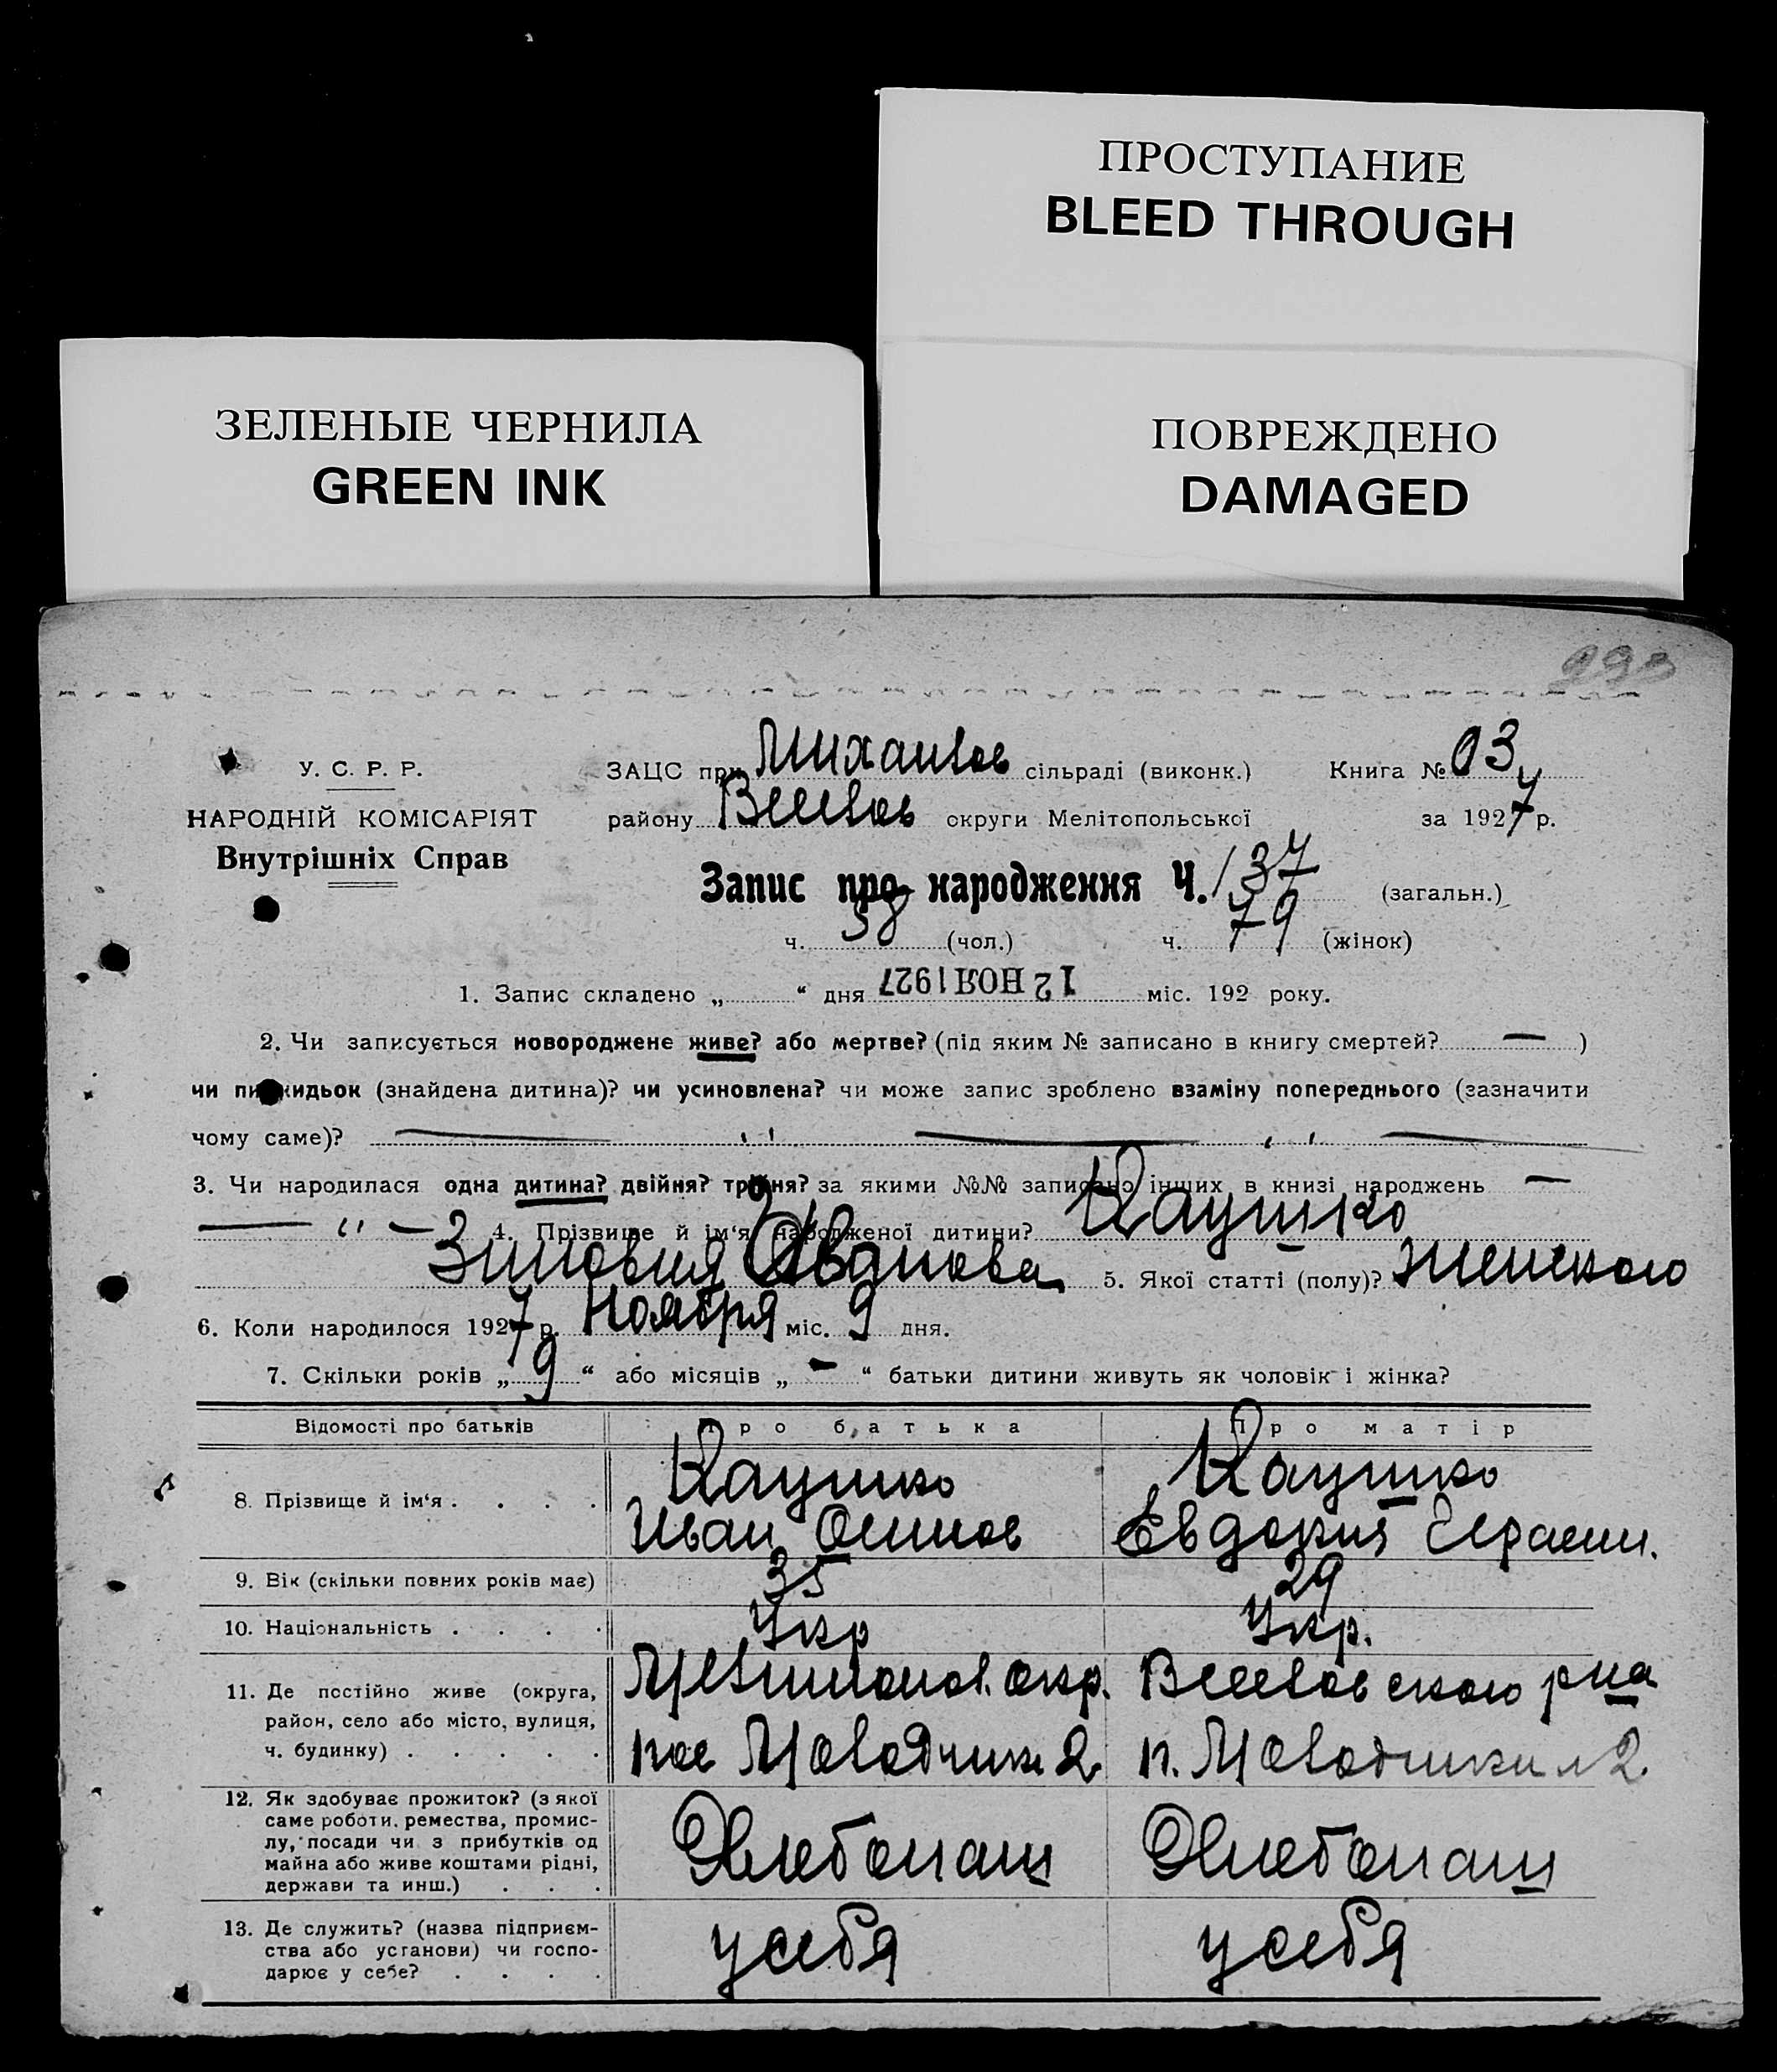 ПРОСТУПАНИЕ
BLEED THROUGH
ЗЕЛЕНЫЕ ЧЕРНИЛА
GREEN INK
ПОВРЕЖДЕНО
DAMAGED
У. С. Р. Р.
НАРОДНІЙ КОМІСАРІЯТ
Внутрішніх Справ
ЗАЦС при Михайлов сільраді (виконк.) Книга № 03
району Веселов округи Мелітопольської за 1927 р.
Запис про народження Ч. 137 (загальн.)
ч. 58 (чол.) ч. 79 (жінок)
1. Запис складено „ “ дня 12 НОЯ 1927 міс. 192 року.
2. Чи записується новороджене живе? або мертве? (під яким № записано в книгу смертей? — )
чи підкидьок (знайдена дитина)? чи усиновлена? чи може запис зроблено взаміну попереднього (зазначити
чому саме)? — " — " —
3. Чи народилася одна дитина? двійня? трійня? за якими №№ записано інших в книзі народжень —
— " — 4. Прізвище й ім'я народженої дитини? Каушко
Зиновия Иванова 5. Якої статті (полу)? Женского
6. Коли народилося 1927 р. Ноября міс. 9 дня.
7. Скільки років „ 9 “ або місяців „ - “ батьки дитини живуть як чоловік і жінка?
Відомості про батьків Про батька Про матір
8. Прізвище й ім'я . . . . Каушко Каушко
Иван Осипов Евдокия Герасим.
9. Вік (скільки повних років має) 35 29
10. Національність . . . . Укр Укр.
11. Де постійно живе (округа, Мелитопол. окр. Веселовского рна
район, село або місто, вулиця,
ч. будинку) . . . . . пос 2 п. 2
12. Як здобуває прожиток? (з якої
саме роботи, ремества, промис-
лу, посади чи з прибутків од
майна або живе коштами рідні, Хлебопаш Хлебопаш
держави та инш.) . . .
13. Де служить? (назва підприєм- у себя у себя
ства або установи) чи госпо-
дарює у себе? . . . .